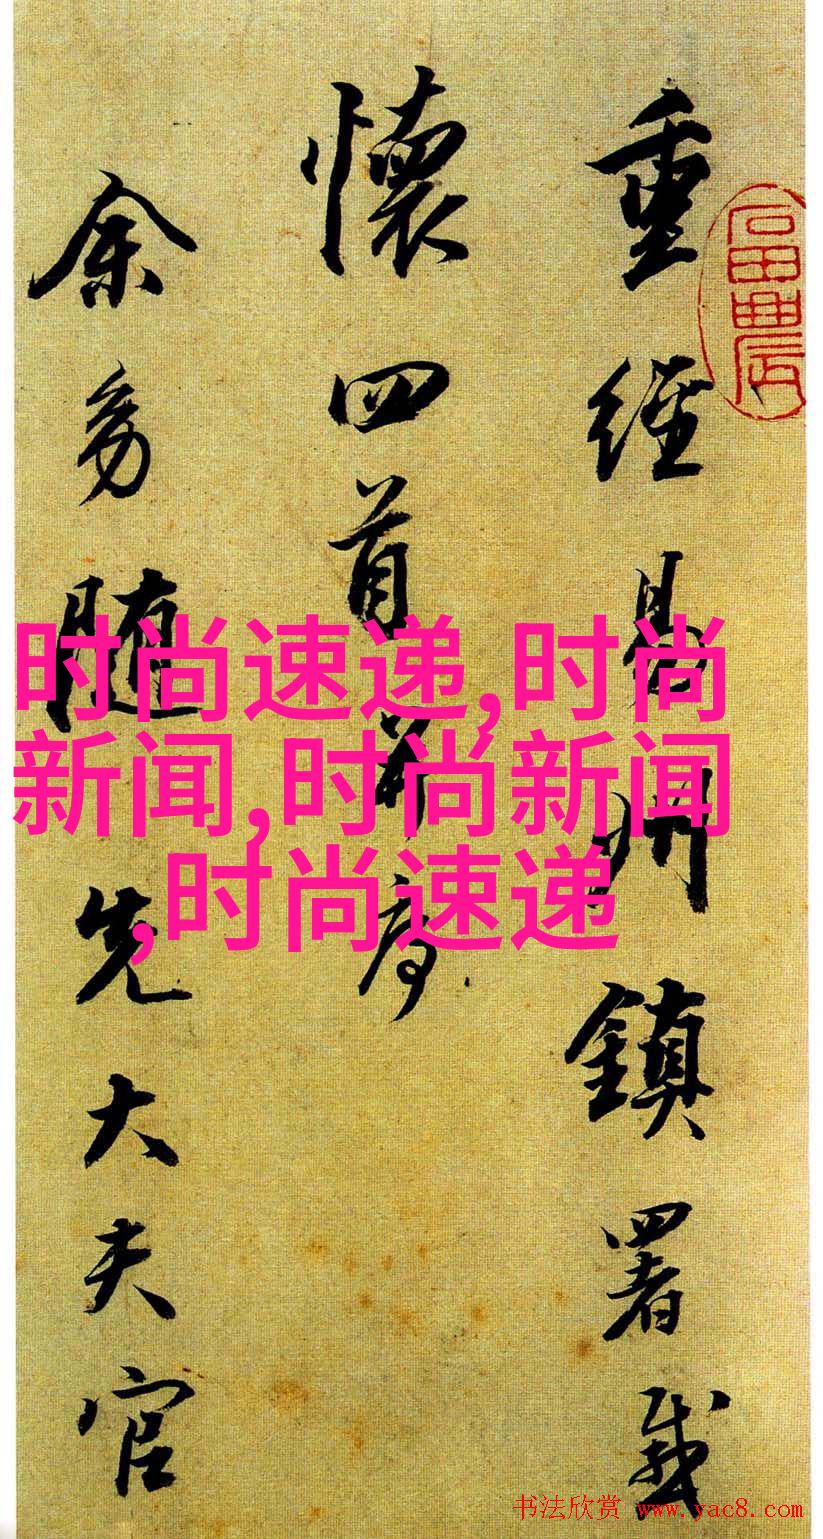 重經易州鎮署感
懷四首并序
余易隨先大夫官
時尚速递,时尚
新闻,时尚新闻
,时尚速递
书法欣赏 www.yac8.com